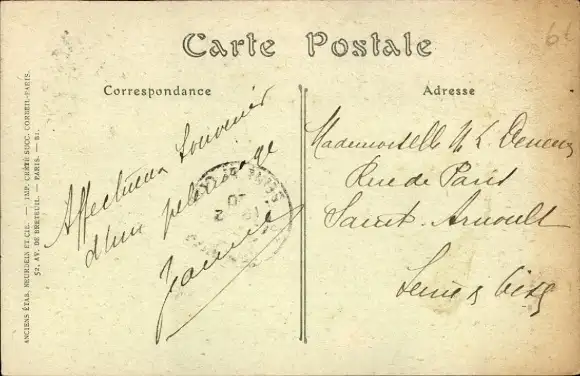 Carte Postale
Correspondance
Adresse
Affectueux Souvenir
d'un pelerinage
Jeanne
Mademoiselle
Rue de Paris
Saint-Arnoult
Seine & Oise
ANCIENS ÉTAB. NEURDEIN ET CIE. — IMP. CRÉTÉ SUCC. CORBEIL-PARIS.
52, AV. DE BRETEUIL. — PARIS. — 81.